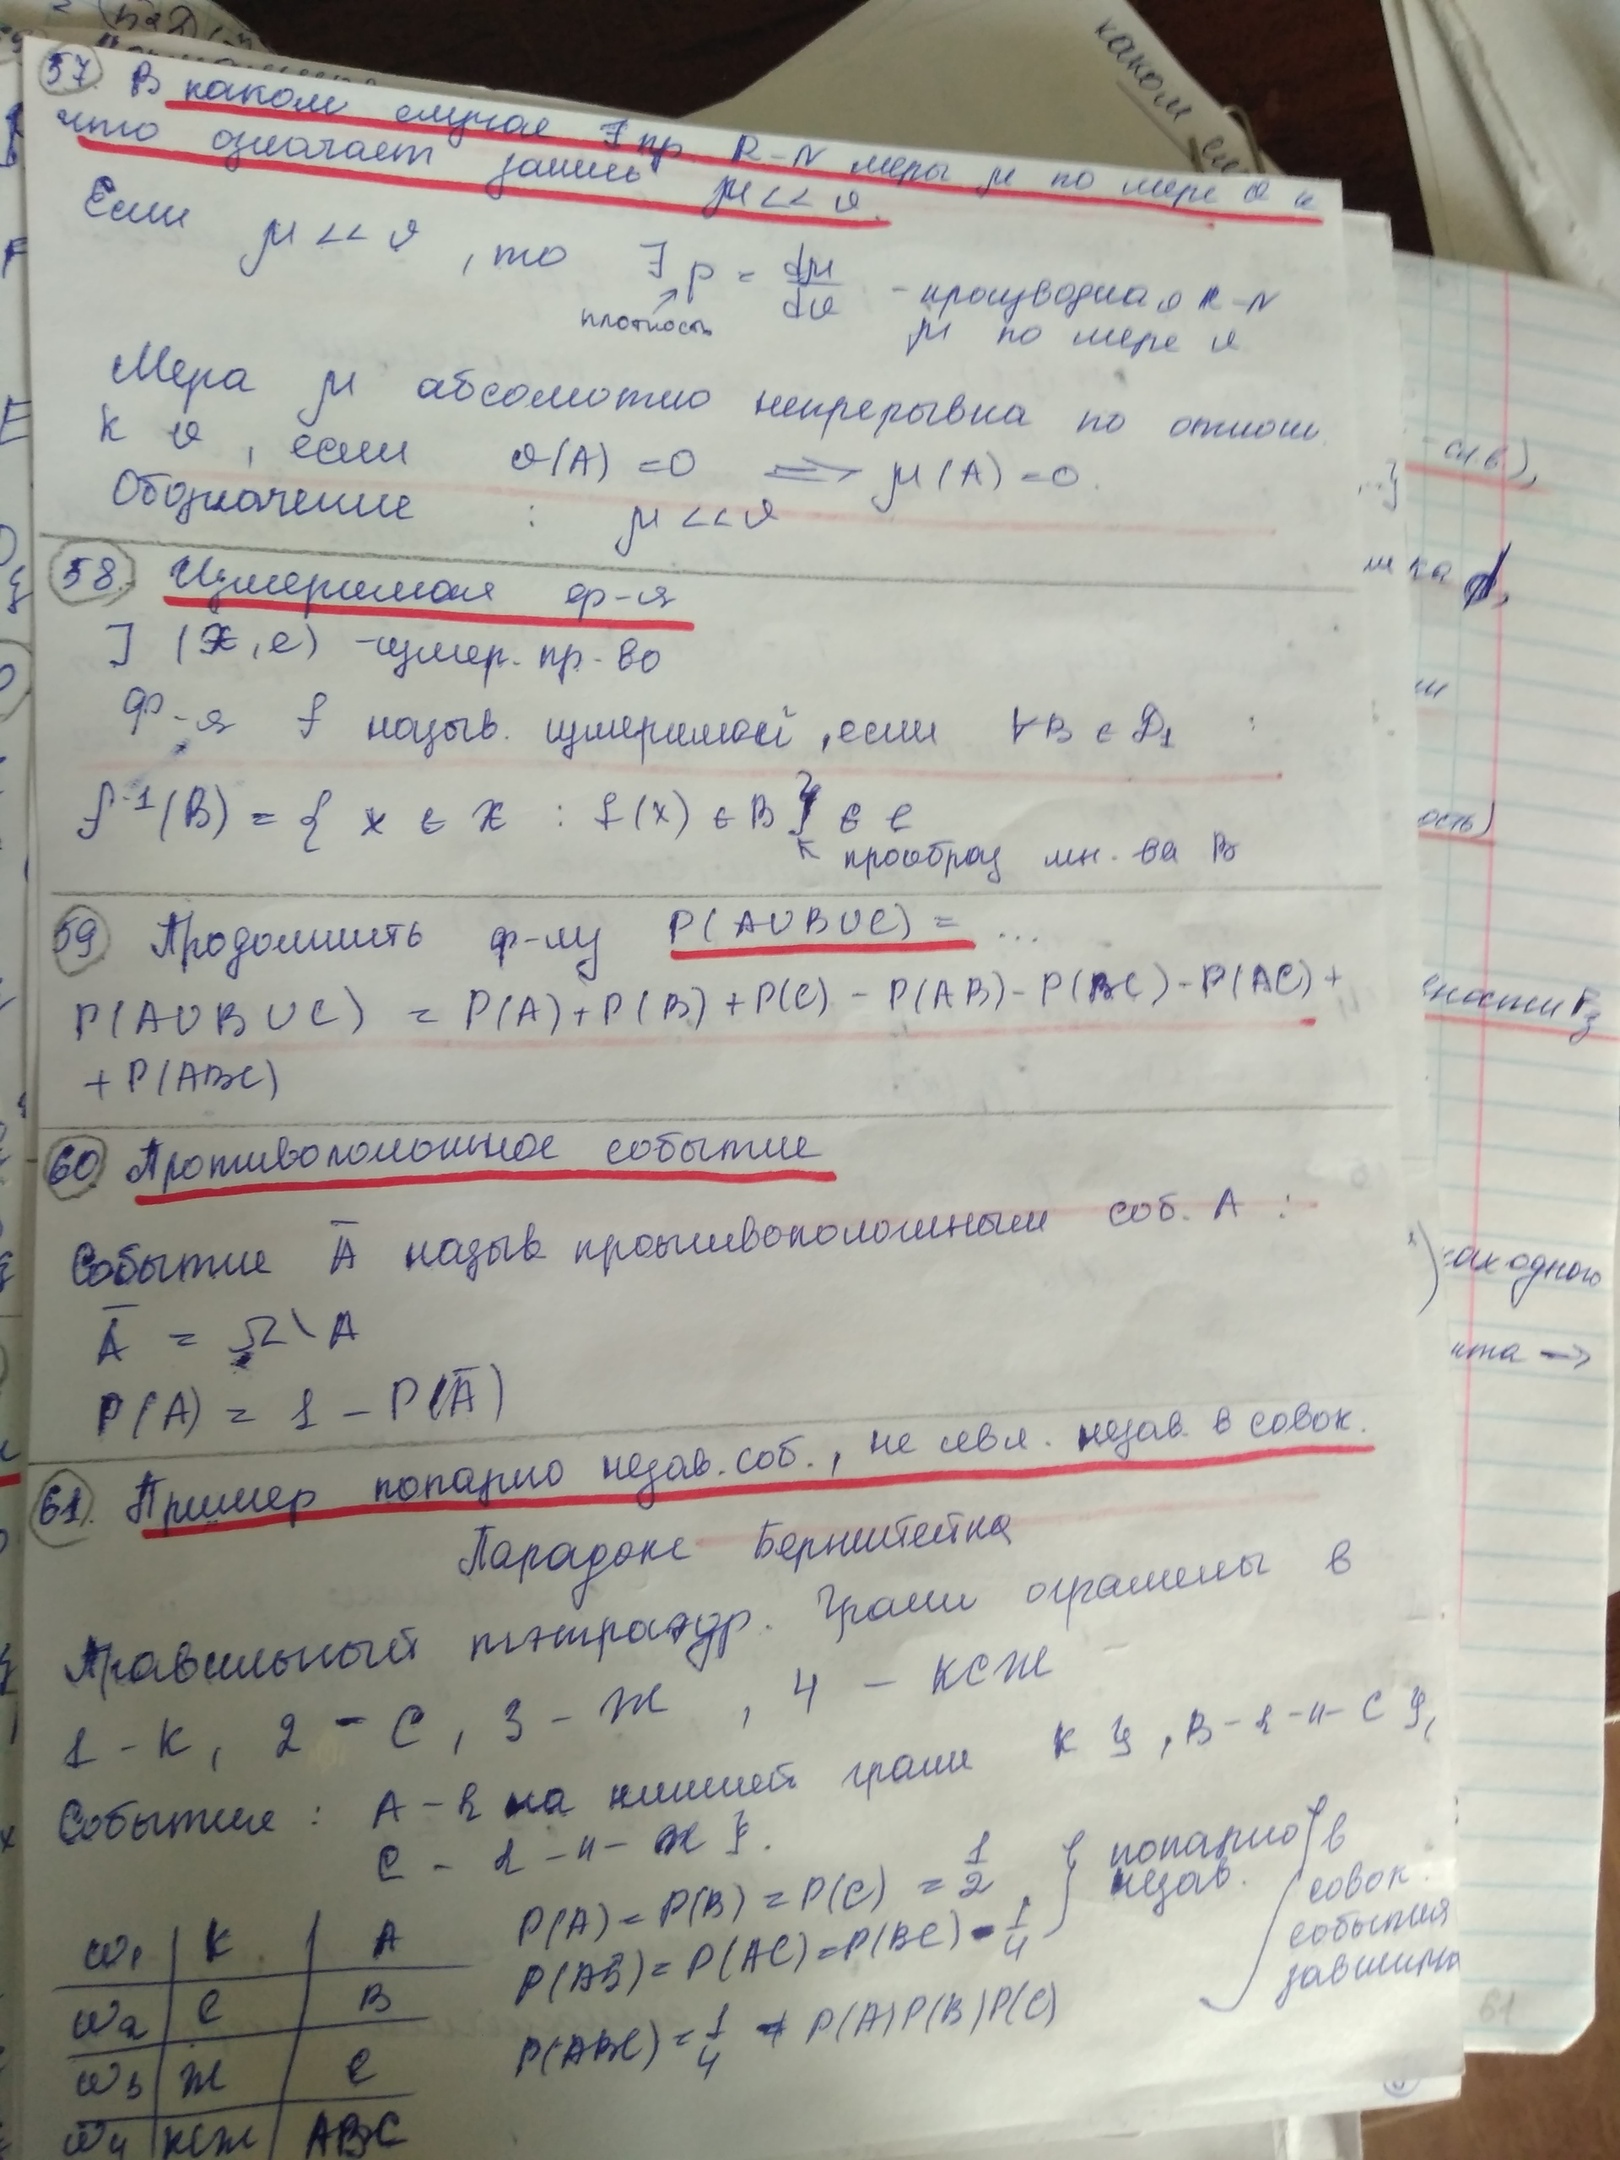 57. В каком случае ∃ пр. R-N меры μ по мере ν и
что означает запись μ << ν.
Если μ << ν, то ∃ p = dμ/dν - производная R-N
плотность μ по мере ν
Мера μ абсолютно непрерывна по отнош.
к ν, если ν(A) = 0 => μ(A) = 0.
Обозначение : μ << ν
58. Измеримая ф-я
] (X, e) - измер. пр-во
Ф-я f назыв. измеримой, если ∀B ∈ B₁ :
f⁻¹(B) = { x ∈ X : f(x) ∈ B } ∈ e
прообраз мн-ва B
59 Продолжить ф-лу P(A∪B∪C) = ...
P(A∪B∪C) = P(A)+P(B)+P(C) - P(AB) - P(BC) - P(AC) +
+ P(ABC)
60. Противоположное событие
Событие Ā назыв противоположным соб. A :
Ā = Ω \ A
P(A) = 1 - P(Ā)
61. Пример попарно незав. соб., не явл. незав. в совок.
Парадокс Бернштейна
Правильный тэтраэдр. Грани огранены в
1 - К, 2 - С, 3 - Ж, 4 - КСЖ
События : A - { на нижней грани К }, B - { -"- С },
C - { -"- Ж }.
P(A) = P(B) = P(C) = 1/2, } попарно
P(AB) = P(AC) = P(BC) = 1/4 незав.
P(ABC) = 1/4 ≠ P(A)P(B)P(C)
} в
совок.
события
зависимы
ω₁ | К | A
ω₂ | С | B
ω₃ | Ж | C
ω₄ | КСЖ | ABC
каком
сл.в),
ость)
ности F
одного
нта →
61